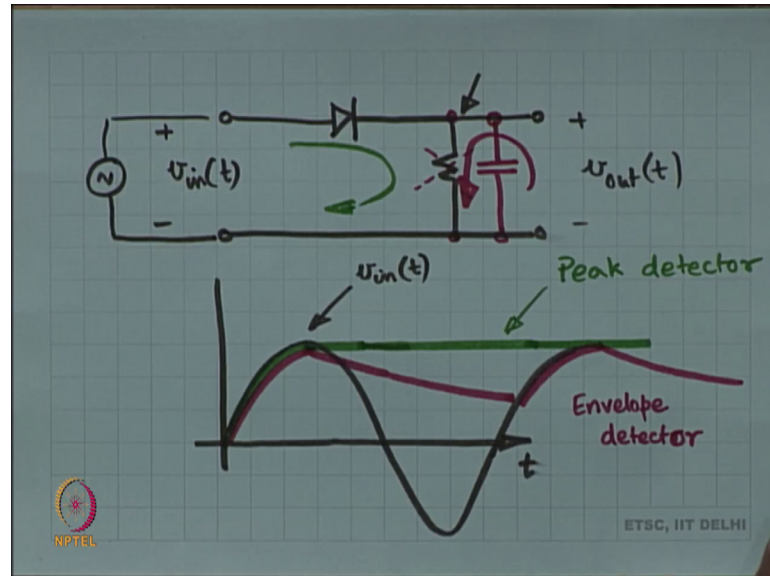 +
+
N
v_in(t)
v_out(t)
-
-
v_in(t)
Peak detector
Envelope
detector
t
NPTEL
ETSC, IIT DELHI